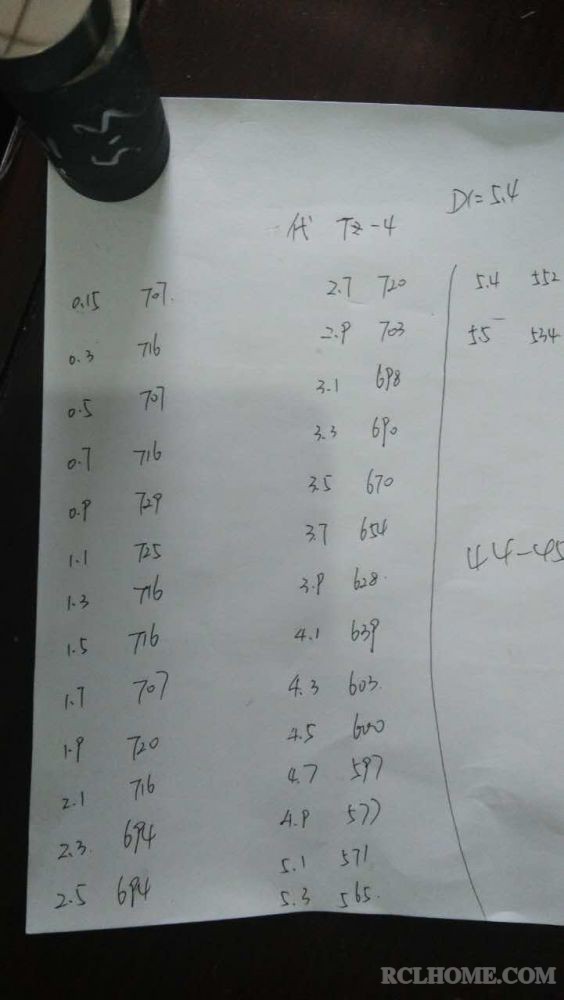 5.5
DC=5.4
代 Tz-4
0.15 707
0.3 716
0.5 707
0.7 716
0.9 729
1.1 725
1.3 716
1.5 716
1.7 707
1.9 720
2.1 716
2.3 694
2.5 694
2.7 720
2.9 703
3.1 698
3.3 690
3.5 670
3.7 654
3.9 628
4.1 639
4.3 603
4.5 600
4.7 597
4.9 577
5.1 571
5.3 565
5.4 552
5.5 534
44-45
RCLHOME.COM